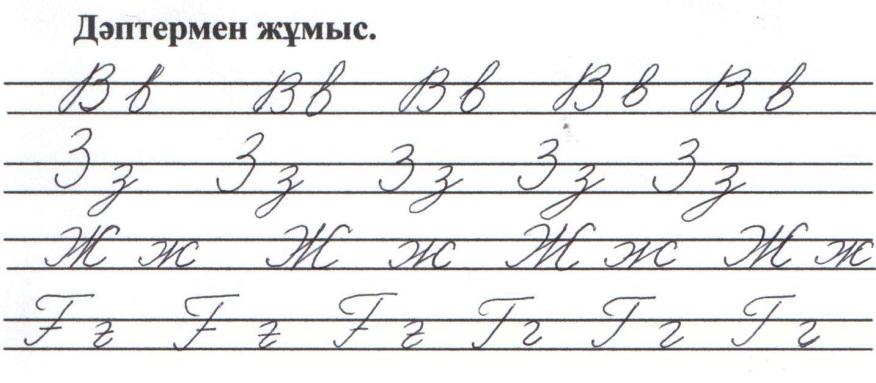 Дәптермен жұмыс.
В в В в В в В в В в
З з З з З з З з З з
Ж ж Ж ж Ж ж Ж ж
Ғ ғ Ғ ғ Ғ ғ Г г Г г Г г